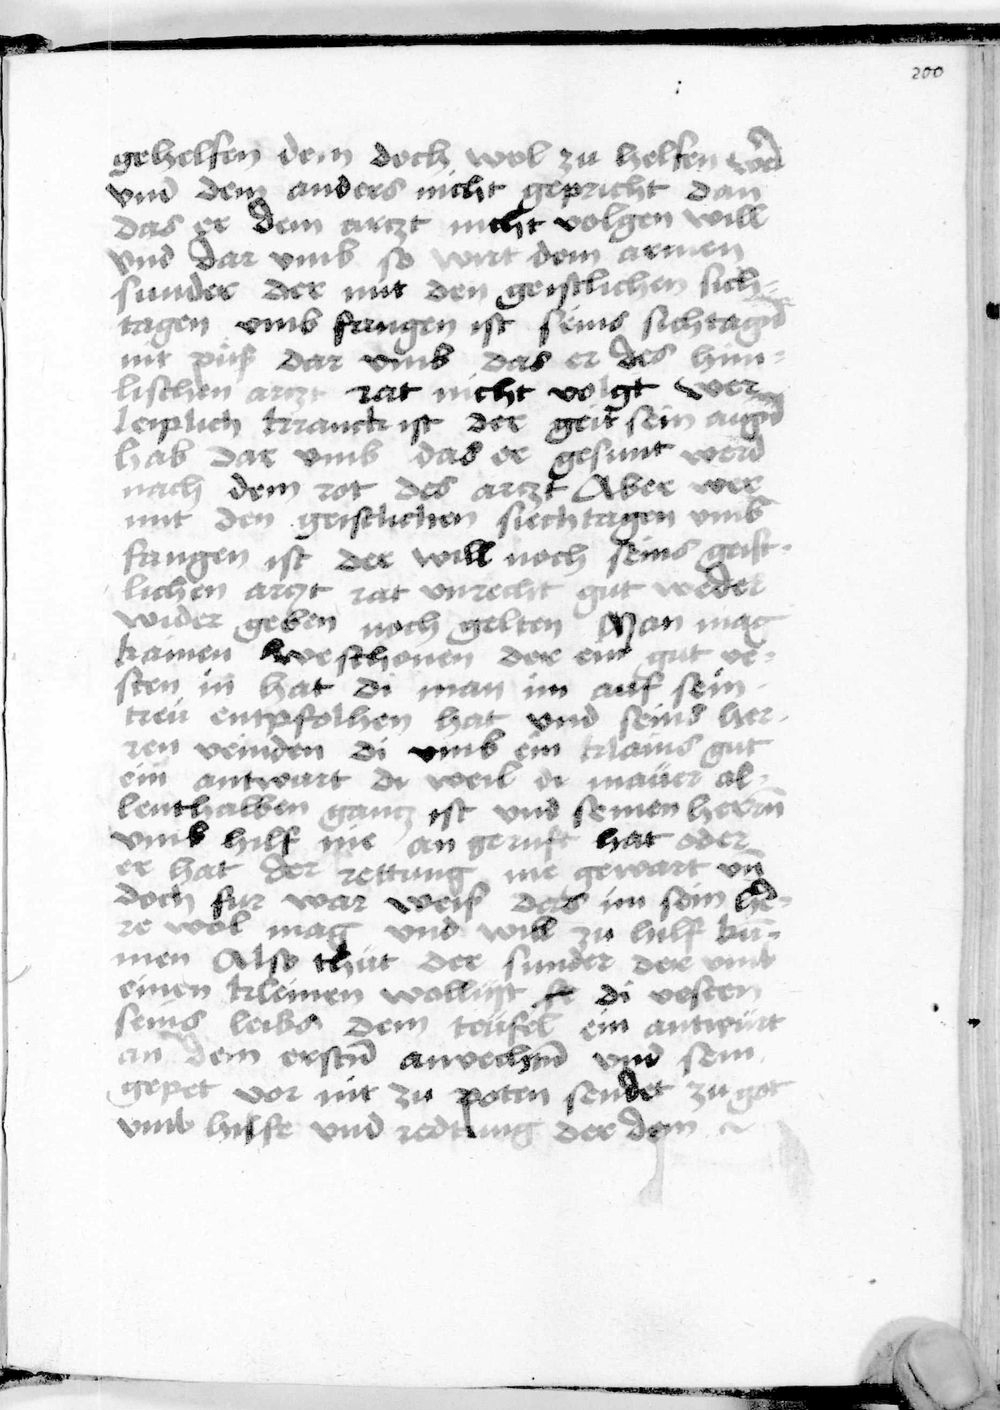 200
gehelfen dem doch wol zu helfen werd
vnd dem anders nicht gepricht dan
das er dem arczt nicht volgen will
vnd dar vmb so wirt dem armen
sunder der mit den geistlichen sich-
tagen vmb fangen ist seins sichtagen
nit puß dar vmb das er des him-
lischen arczt rat nicht volgt wer
leiplich kranck ist der geit sein augen
hab dar vmb das er gesunt werd
nach dem rot des arczt Aber wer
mit den geistlichen siechtagen vmb
fangen ist der will noch seins geist-
lichen arczt rat vnrecht gut weder
wider geben noch gelten Man mag
kainen weschonen der ein gut ve-
sten in hat di man im auf sein
treu entpfolhen hat vnd seins her-
ren veinden di vmb ein klains gut
ein antwurt di weil di mauer al-
lenthalben gancz ist vnd seinen herrn
vmb hilf nie an geruft hat oder
er hat der rettung nie gewart vn̄
doch fur war weiß das im sein her-
re wol mag vnd will zu hilf kū-
men Also thut der sunder der vmb
einen kleinen wollust di vesten
seins leibs dem teufel ein antwurt
an dem ersten anvechten vnd sein
gepet vor nit zu poten sendet zu got
vmb hilfe vnd redtung der dem